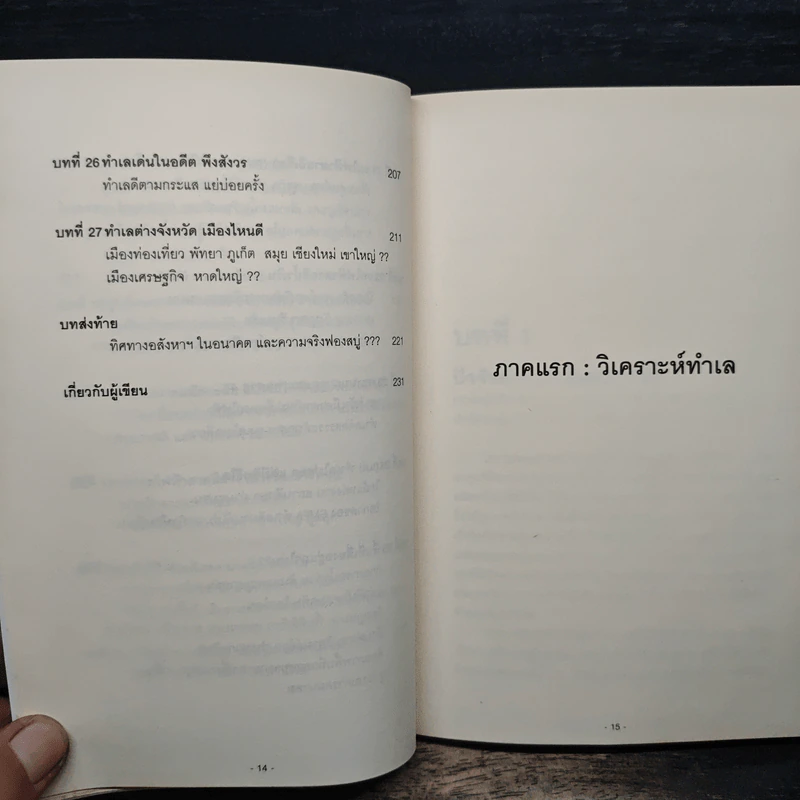 บทที่ 26 ทำเลเด่นในอดีต พึงสังวร 207
ทำเลดีตามกระแส แย่บ่อยครั้ง
บทที่ 27 ทำเลต่างจังหวัด เมืองไหนดี 211
เมืองท่องเที่ยว พัทยา ภูเก็ต สมุย เชียงใหม่ เขาใหญ่ ??
เมืองเศรษฐกิจ หาดใหญ่ ??
บทส่งท้าย
ทิศทางอสังหาฯ ในอนาคต และความจริงฟองสบู่ ??? 221
เกี่ยวกับผู้เขียน 231
- 14 -
ภาคแรก : วิเคราะห์ทำเล
- 15 -